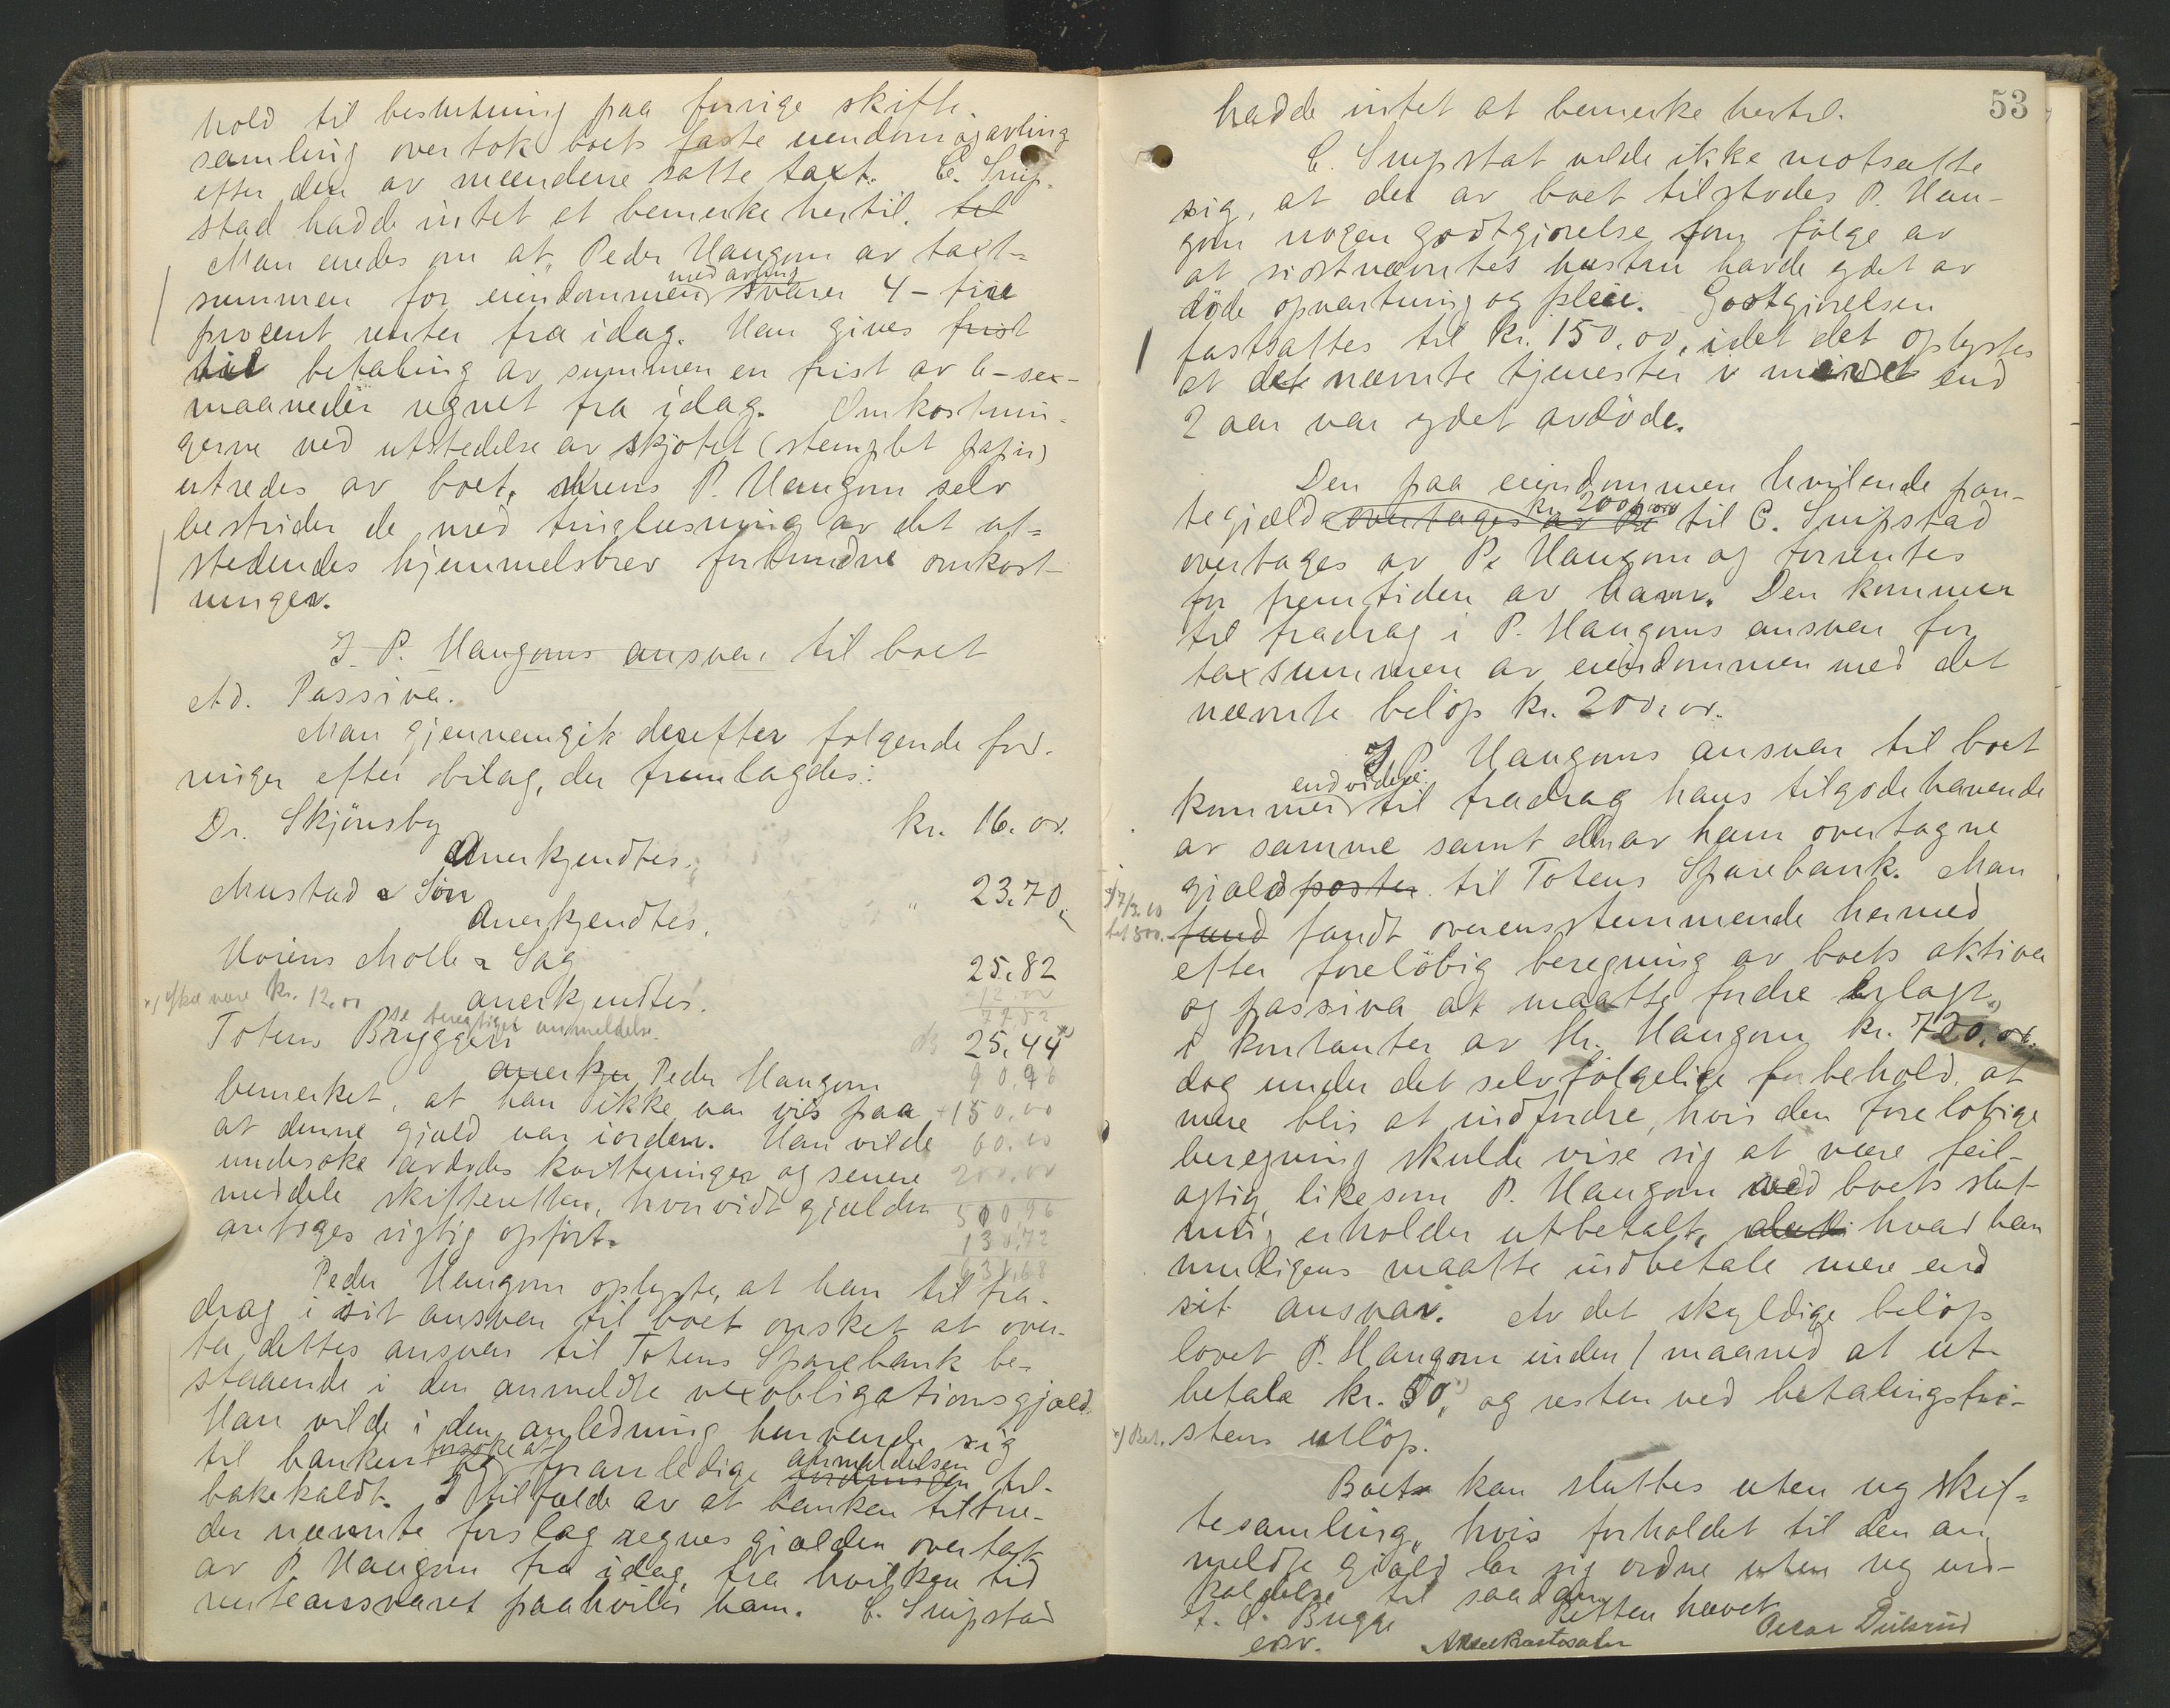 hold til beslutning paa forrige skifte-
samling overtok boets faste eiendom og avling
efter den av mændene satte taxt. C. Snip-
stad hadde intet at bemerke hertil. til
Man enedes om at Peder Haugom av taxt-
med avling
summen for eiendommen svarer 4 - fire
procent renter fra idag. Han gives frist
til betaling av summen en frist av 6 - sex -
maaneder regnet fra idag. Omkostnin-
gerne ved utstedelse av skjøtet (stemplet papir)
utredes av boet, mens P. Haugom selv
bestrider de med tinglæsning av det ut-
stedendes hjemmelsbrev forbundne omkost-
ninger.
I P. Haugoms ansvar til boet
Ad. Passiva.
Man gjennemgik derefter følgende ford-
ringer efter bilag, der fremlagdes:
Dr. Skjönsby kr. 16.00.
Anerkjendtes.
Mustad & Søn " 23.70
Anerkjendtes.
Horens Mølle & Sag 25,82
anerkjendtes.
x) Skal være kr. 12.00
se beregtiget anmeldelse.
12.00
Totens Bryggeri 25,44 x)
anerkje Peder Haugom
bemerket, at han ikke var vis paa
at denne gjæld var iorden. Han vilde
undersøke avdødes kvitteringer og senere
meddele skifteretten, hvorvidt gjælden
antages rigtig opført.
90,96
+150.00
60.00
200.00
500,96
130,72
631,68
Peder Haugom oplyste, at han til fra-
drag i sit ansvar til boet ønsket at over-
ta dettes ansvar til Totens Sparebank be-
staaende i den anmeldte vexobligationsgjæld.
Han vilde i den anledning henvende sig
til banken forsøke at foranledige anmeldelsen fordringen til-
bakekaldt. I tilfælde av at banken tiltræ-
der nævnte forslag regnes gjælden overtat
av P. Haugom fra idag, fra hvilken tid
renteansvaret paahviler ham. C. Snipstad
53
hadde intet at bemerke hertil.
C. Snipstat vilde ikke motsætte
sig, at der av boet tilstodes P. Hau-
gom nogen godtgjørelse som følge av
at sidstnævntes hustru havde ydet av
døde opvartning og pleie. Godtgjørelsen
fastsattes til kr. 150.00, idet det oplystes
at de nævnte tjenester i mindst end
2 aar var ydet avdøde.
Den paa eiendommen hvilende pan-
kr. 200,00
tegjæld overtages av P. til C. Snipstad
overtages av P. Haugom og forrentes
for fremtiden av ham. Den kommer
til fradrag i P. Haugoms ansvar for
taxsummen av eiendommen med det
nævnte beløp kr. 200,00.
I P. Haugoms ansvar til boet
endvidere
kommer til fradrag hans tilgodehavende
av samme samt den av ham overtagne
gjæld poster til Totens Sparebank. Man
fand fandt overensstemmende hermed
efter foreløbig beregning av boets aktiva
og passiva at maatte fordre erlagt
i kontanter av Hr. Haugom kr. 720.00.
dog under det selvfølgelige forbehold, at
mere blir at indfordre, hvis den foreløbige
beregning skulde vise sig at være feil-
agtig, likesom P. Haugom ved boets slut-
ning erholder utbetalt, hvad han
muligens maatte indbetale mere end
sit ansvar. Av det skyldige beløp
lovet P. Haugom inden 1 maaned at ut-
betale kr. 50, x) og resten ved betalingsfri-
x) Bet. stens utløp.
Boets kan sluttes uten ny skif-
tesamling, hvis forholdet til den an
meldte gjæld lar sig ordne uten ny ind-
kaldelse til saadan.
Retten hævet
A. C. Bugge
edsv.
Oscar Dulsrud